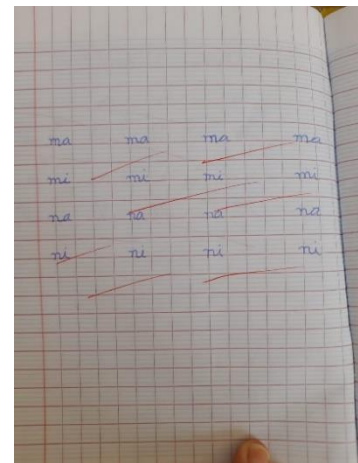 ma ma ma ma
mi mi mi mi
na na na na
ni ni ni ni